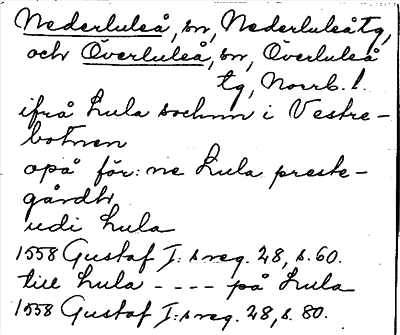 Nederluleå, sn, Nederluleå tg,
och Överluleå, sn, Överluleå
tg, Norrb. l.
ifrå Lula sochnn i Vestre-
botnen
opå för:ne Lula preste-
gårdh
udi Lula
1558 Gustaf I:s reg. 28, s. 60.
till Lula - - - - på Lula
1558 Gustaf I:s reg. 28, s. 80.